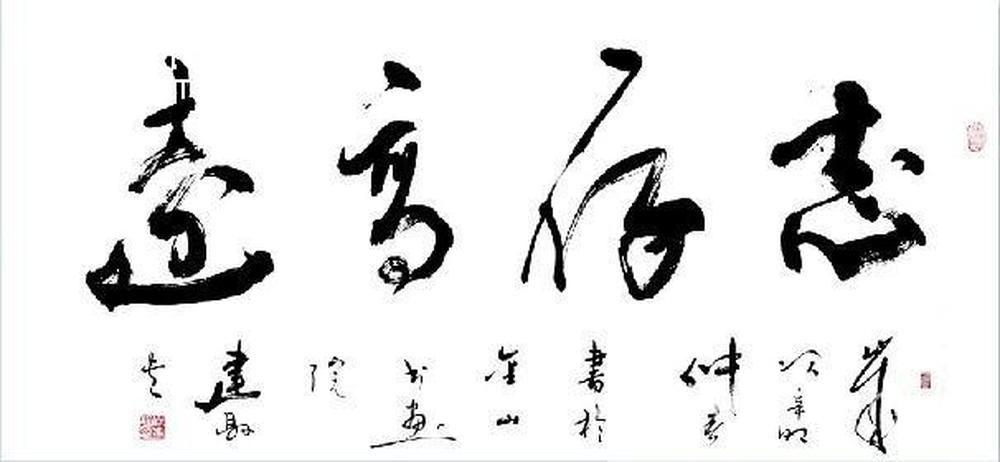 志存高遠
歲
次辛卯
仲春
書於
金山
书畫
院
建